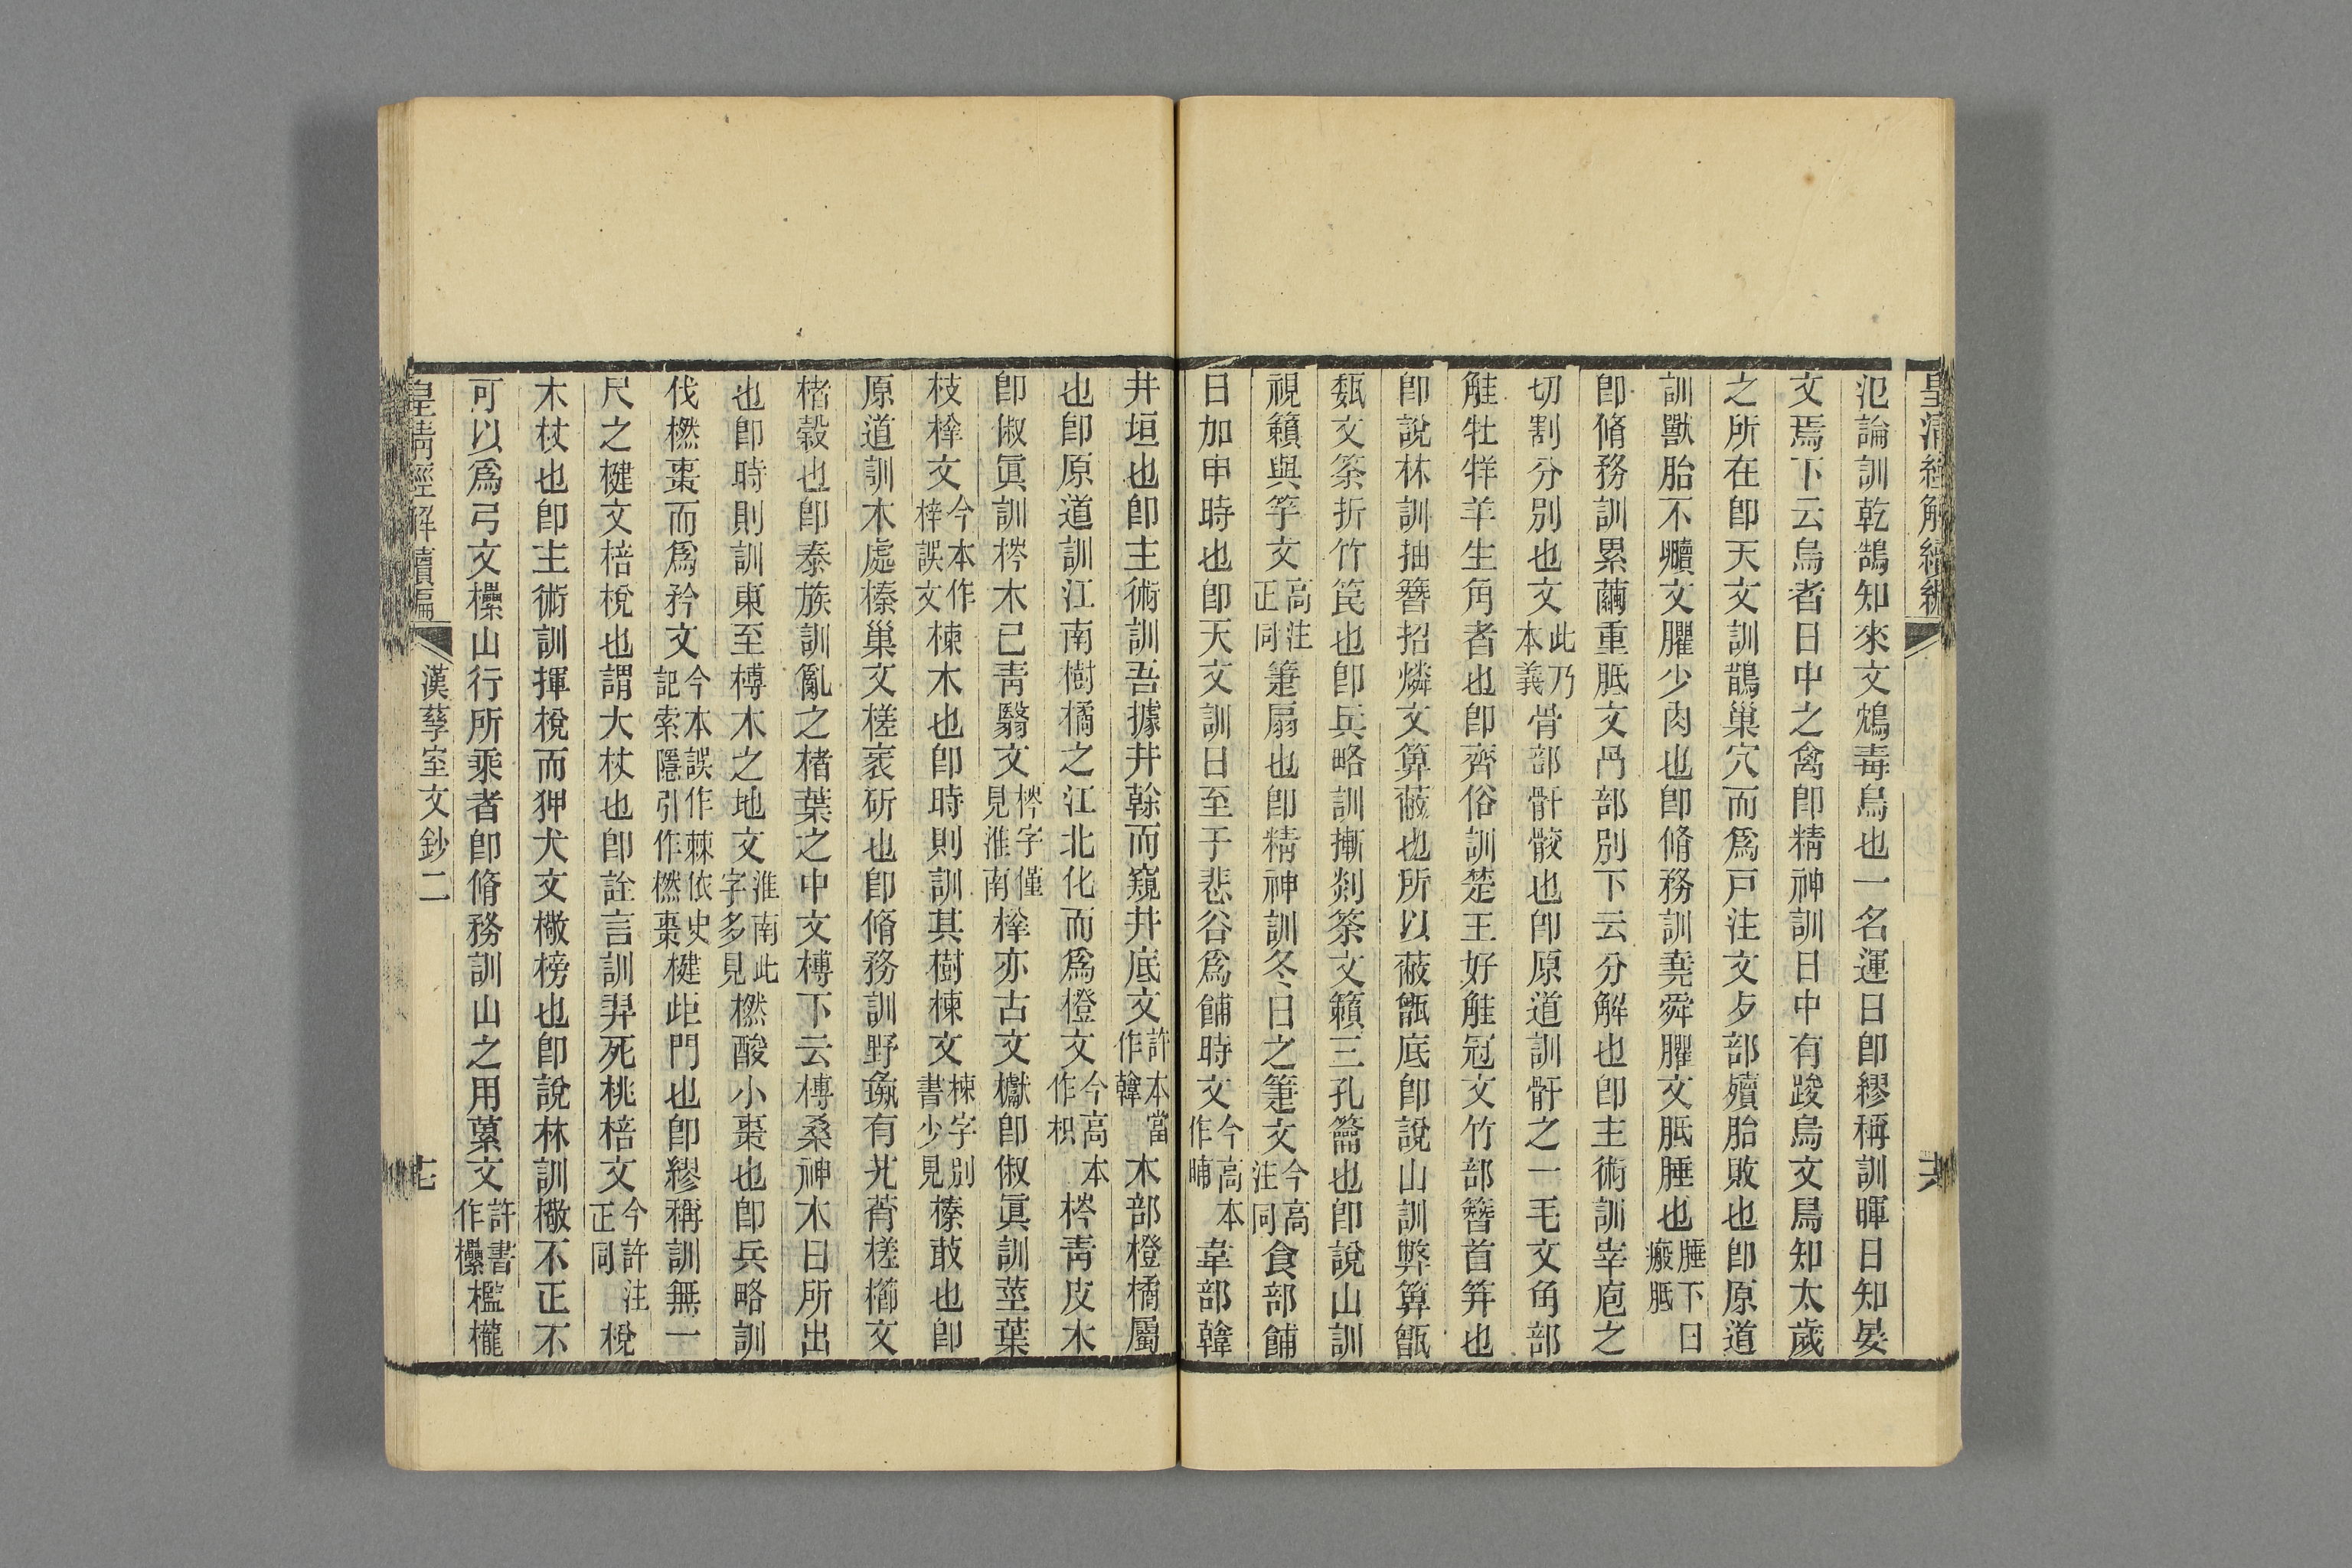 皇清經解續編
氾論訓乾鵠知來文鴆毒鳥也一名運日卽繆稱訓暉日知晏
文焉下云烏者日中之禽卽精神訓日中有踆烏文舄知太歲
之所在卽天文訓鵲巢穴而爲戸注文歺部殰胎敗也卽原道
訓獸胎不殰文臞少肉也卽脩務訓堯舜臞文胝腄也腄下曰瘢胝
卽脩務訓累繭重胝文冎部別下云分解也卽主術訓宰庖之
切割分別也文此乃本義骨部骭骹也卽原道訓骭之一毛文角部
觟牡牂羊生角者也卽齊俗訓楚王好觟冠文竹部簪首筓也
卽說林訓抽簪招燐文箅蔽也所以蔽甑底卽說山訓弊箅甑
甀文筡折竹笢也卽兵略訓摲剡筡文籟三孔籥也卽說山訓
視籟與竽文高注正同箑扇也卽精神訓冬日之箑文今高注同食部餔
日加申時也卽天文訓日至于悲谷爲餔時文今高本作晡韋部韓
井垣也卽主術訓吾據井榦而窺井底文許本當作韓木部橙橘屬
也卽原道訓江南樹橘之江北化而爲橙文今高本作枳梣靑皮木
卽俶眞訓梣木已靑翳文梣字僅見淮南櫱亦古文巘卽俶眞訓莖葉
枝櫱文今本作梓誤文楝木也卽時則訓其樹楝文楝字別書少見榛菆也卽
原道訓木處榛巢文槎衺斫也卽脩務訓野彘有艽莦槎櫛文
楮榖也卽泰族訓亂之楮葉之中文榑下云榑桑神木日所出
也卽時則訓東至榑木之地文淮南此字多見橪酸小棗也卽兵略訓
伐橪棗而爲矜文今本誤作棘依史記索隱引作橪棗楗歫門也卽繆稱訓無一
尺之楗文棓梲也謂大杖也卽詮言訓羿死桃棓文今許注正同梲
木杖也卽主術訓揮梲而狎犬文檄榜也卽說林訓檄不正不
可以爲弓文欙山行所乘者卽脩務訓山之用蔂文許書作欙檻櫳
皇淸經解續編 漢孳室文鈔二 十七